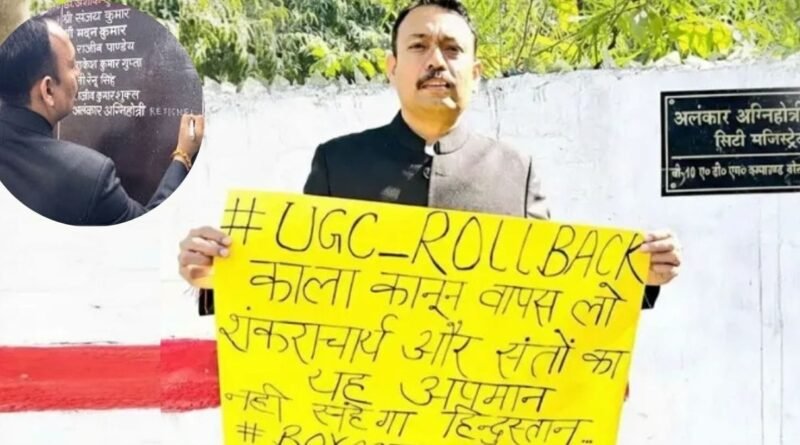 श्री संजय कुमार
श्री मदन कुमार
राजीव पाण्डेय
राकेश कुमार गुप्ता
रेनू सिंह
राजीव कुमार शुक्ल
अलंकार अग्निहोत्री
# UGC_ROLLBACK
काला कानून वापस लो
शंकराचार्य और संतों का
यह अपमान
नहीं सहेगा हिन्दुस्तान...
अलंकार अग्निहोत्री
सिटी मजिस्ट्रे
बी-10 ए० डी० एम० कम्पाउण्ड